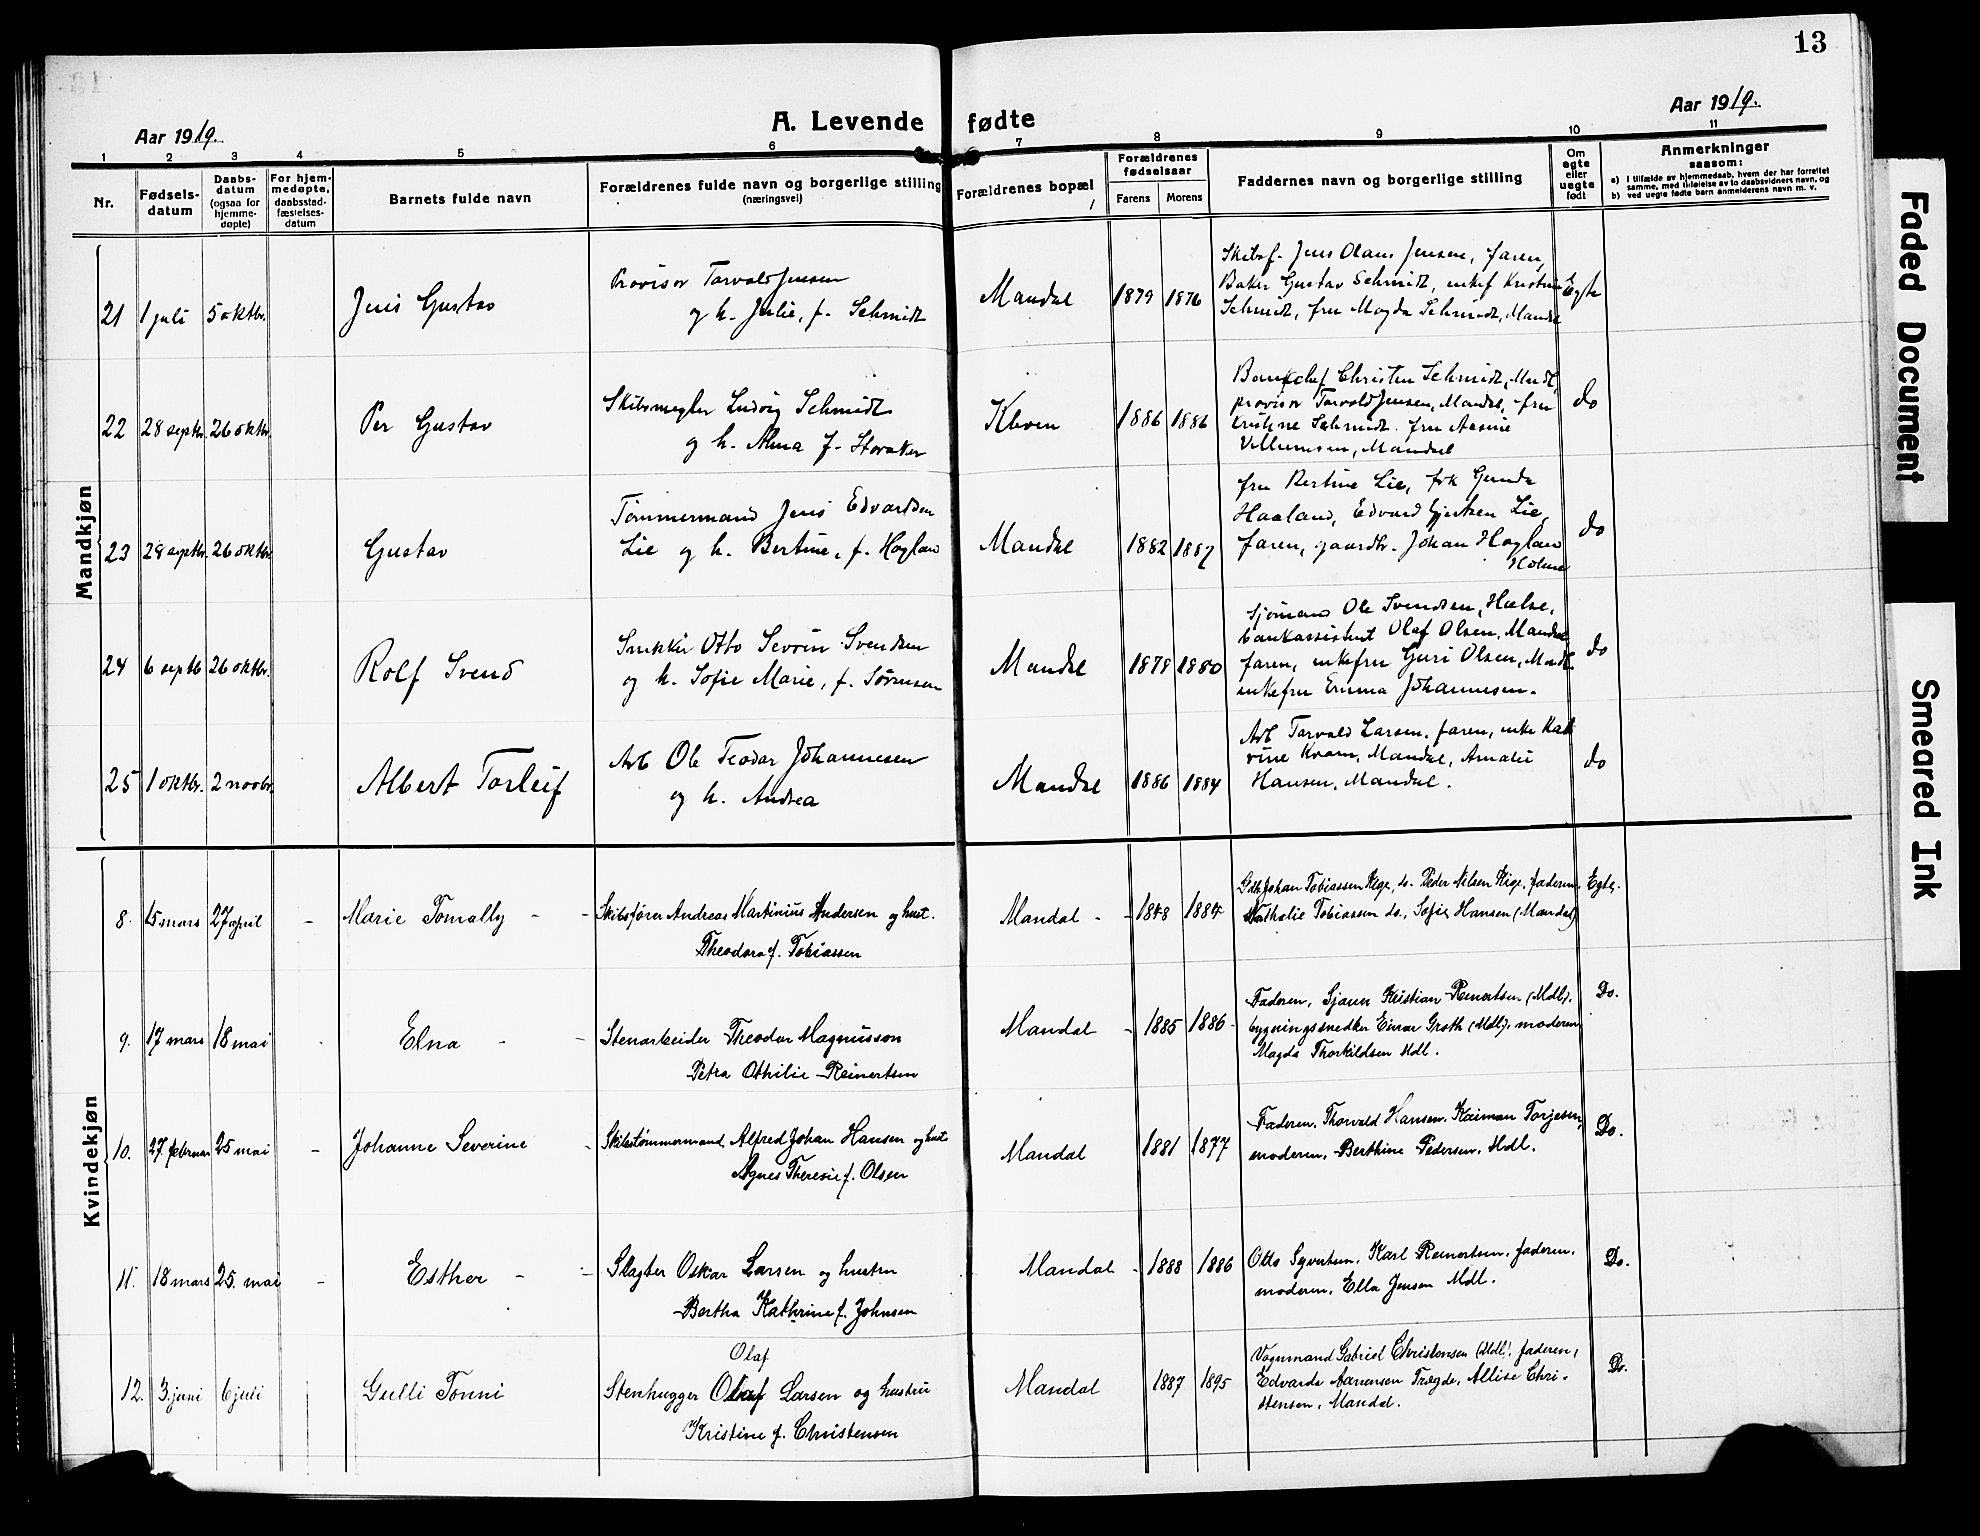 13
Aar 1919.
A. Levende fødte
Aar 1919.
1 2 3 4 5 6 7 8 9 10 11
Nr.
Fødsels-
datum
Daabs-
datum
(ogsaa for
hjemme-
døpte)
For hjem-
medøpte,
daabsstad-
fæstelses-
datum
Barnets fulde navn
Forældrenes fulde navn og borgerlige stilling
(næringsvei)
Forældrenes bopæl
Forældrenes
fødselsaar
Farens Morens
Faddernes navn og borgerlige stilling
Om
egte
eller
uegte
født
Anmerkninger
saasom:
a) i tilfælde av hjemmedaab, hvem der har forrettet
samme, med tilføielse av to daabsvidners navn, og
b) ved uegte fødte barn anmelderens navn m. v.
Mandkjøn
21 1 juli 5 oktbr. Jens Gustav
Provisor Torvald Jensen
og h. Julie, f. Schmidt
Mandal 1879 1876
Skibsf. Jens Olaus Jensen, faren,
Baker Gustav Schmidt, enkef Kristine
Schmidt, fru Magda Schmidt, Mandal
Egte
22 28 septbr. 26 oktbr. Per Gustav
Skibsmegler Ludvig Schmidt
og h. Alma f. Storaker
Kleven 1886 1886
Bankchef Christen Schmidt, Mndl,
provisor Torvald Jensen, Mandal, fru
Kristine Schmidt. fru Aasine
Villumsen, Mandal
do
23 28 septbr. 26 oktbr. Gustav
Tømmermand Jens Edvardsen
Lie og h. Bertine, f. Høyland
Mandal 1882 1887
fru Bertine Lie, frk Gunda
Haaland, Edvard Gjertsen Lie,
faren, gaardbr. Johan Høyland
Holme
do
24 6 septb 26 oktbr. Rolf Svend
Snekker Otto Severin Svendsen
og h. Sofie Marie, f. Sørensen
Mandal 1878 1880
Sjømand Ole Svendsen, Halse,
bankassistent Olaf Olsen, Mandal
faren, enkefru Guri Olsen, Mndl.
enkefru Emma Johannesen.
do
25 1 oktbr. 2 novbr. Albert Torleif
Arb Ole Teodor Johannesen
og h. Andrea
Mandal 1886 1884
Arb Torvald Larsen, faren, enke Kat
rine Kvam, Mandal, Amalie
Hansen, Mandal.
do
Kvindekjøn
8. 15 mars 27 april - Marie Tomally - -
Skibsfører Andreas Martinius Andersen og hust.
Theodora f. Tobiassen
Mandal - - 1884
Gdb. Johan Tobiassen Kige, do. Peder Nilsen Kige, faderen,
Nathalie Tobiassen do., Sofie Hansen (Mandal)
Egte.
9. 17 mars 18 mai Elna - -
Stenarbeider Theodor Magnusson
Petra Othilie Reinertsen
Mandal - 1885 1886
Faderen, Sjaum Kristian Reinertsen (Mdl).
bygningssnedker Einar Groth (Mdl). moderen
Magda Thorkildsen Mdl.
Do.
10. 27. februar 25 mai - Johanne Severine -
Skibstømmermand Alfred Johan Hansen og hust
Agnes Theresie f. Olsen
Mandal 1881 1877
Faderen. Thorvald Hansen. Kaiman Torjesen,
moderen. Berthine Pedersen. Mdl.
Do.
11. 18 mars 25. mai - Esther - -
Slagter Oskar Larsen og hustru
Bertha Kathrine f. Johnsen
Mandal - 1888 1886
Otto Syvertsen. Karl Reinertsen. faderen.
moderen. Ella Jensen Mdl.
Do.
12. 3. juni 6 juli Gulli Tonni
Olaf
Stenhugger Olaf Larsen og hustru
Kristine f. Christensen
Mandal 1887 1895
Vognmand Gabriel Christensen (Mdl). faderen,
Edvarda Aanensen Trægde. Allise Chri-
stensen. Mandal.
Do.
Faded Document
Smeared Ink